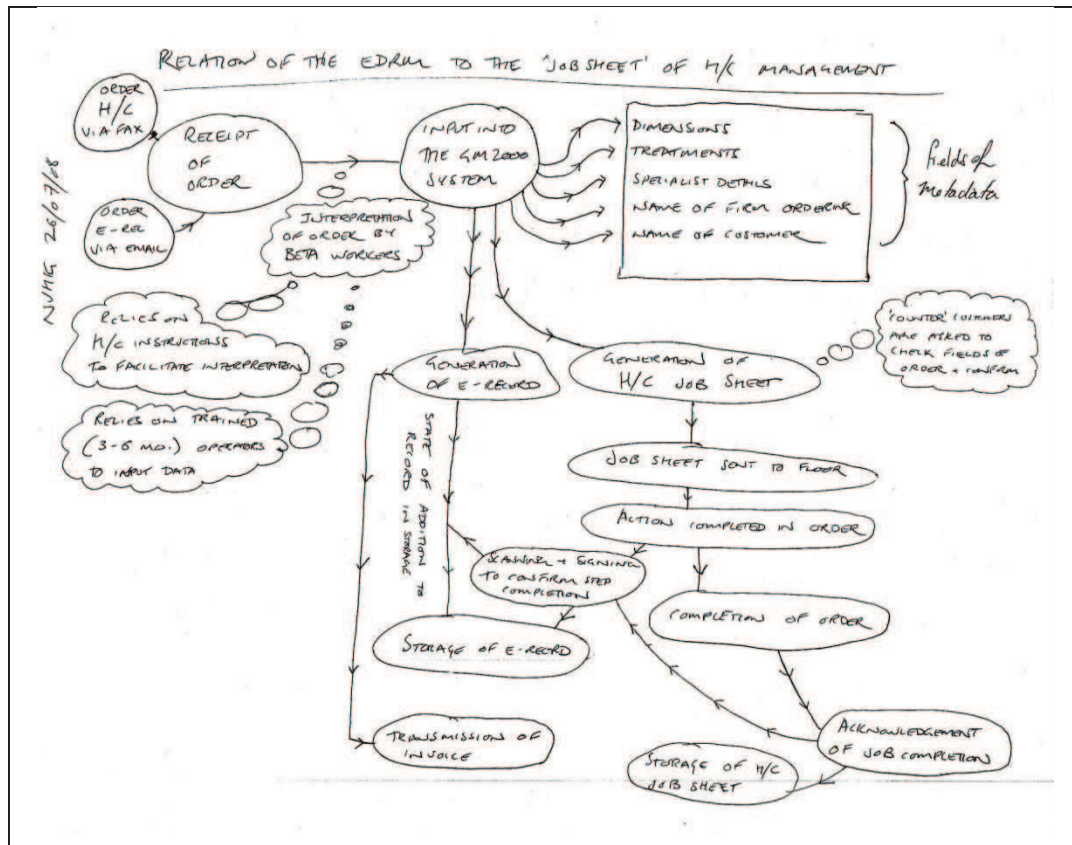 RELATION OF THE EDRM TO THE 'JOB SHEET' OF H/C MANAGEMENT
ORDER
H/C
VIA FAX
RECEIPT
OF
ORDER
INPUT INTO
THE GM2000
SYSTEM
DIMENSIONS
TREATMENTS
SPECIALIST DETAILS
NAME OF FIRM ORDERING
NAME OF CUSTOMER
Fields of
Metadata
26/07/08
ORDER
E-REC
VIA EMAIL
INTERPRETATION
OF ORDER BY
BETA WORKERS
RELIES ON
H/C INSTRUCTIONS
TO FACILITATE INTERPRETATION
RELIES ON TRAINED
(3-6 MO.) OPERATORS
TO INPUT DATA
GENERATION
OF E-RECORD
GENERATION OF
H/C JOB SHEET
'COUNTER' CUSTOMERS
ARE ASKED TO
CHECK FIELDS OF
ORDER + CONFIRM
STATE OF ADDITION TO
RECORD IN STORAGE
JOB SHEET SENT TO FLOOR
ACTION COMPLETED IN ORDER
SCANNING + SIGNING
TO CONFIRM STEP
COMPLETION
COMPLETION OF ORDER
STORAGE OF E-RECRD
TRANSMISSION OF
INVOICE
ACKNOWLEDGEMENT
OF JOB COMPLETION
STORAGE OF H/C
JOB SHEET